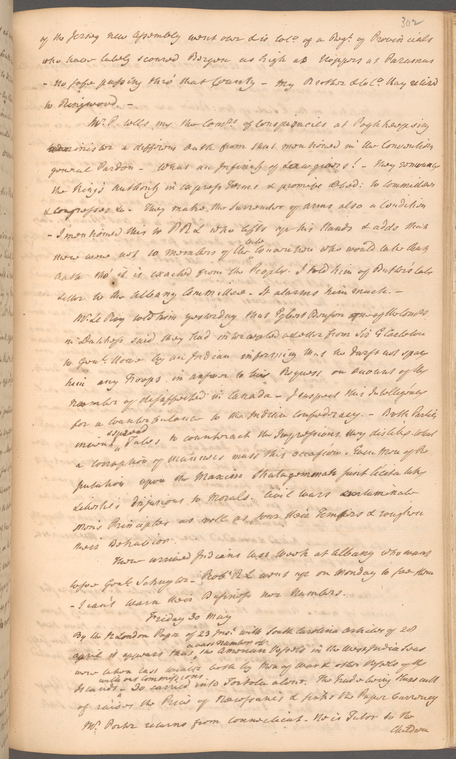 302
of the Jersey new Assembly went over & is Col.º of a Reg.t of Provincials
who have lately scoured Bergen as high as Hoppers at Paramus
- No safe passing thro' that County - My Brother & Col.º Hay retired
to Ringwood. -
Mr. P. tells me the Com.rs of Conspiracies at Poghkeepsing
administer a different Oath from that mentioned in the Convention
general Pardon - What an Infinity of Lawgivers! - They renounce
the King's Authority in express Terms & promise Obed: to Committees
& Congresses &c - They make the Surrender of Arms also a Condition
- I mentioned this to P R L who lifts up his Hands & adds that
there were not 20 Members of the late Convention who would take that
Oath tho' it is exacted from the People. I told him of Butlers late
Letter to the Albany Committee - It alarms him much. -
Mr. Le Roy told him yesterday that Egbert Benson one of the Com.rs
in Dutchess said they had intercepted a Letter from Sir G Carleton
to Gen.l Howe by an Indian informing that he durst not spare
him any Troops in answer to his Request on Account of the
Number of disaffected in Canada - I suspect this Intelligence
for a Counterbalance to the Indian Confederacy - Both Parties
spread
Tales to counteract the Impressions they dislike what
a corruption of Manners must this occasion - Even Men of
upon the Maxim Stratagemata sunt
Injurious to Morals. Civil Wars contaminate
Mens Principles as well as sour their Tempers & roughen
their Behavior.
There arrived Indians last Week at Albany who want
to see Gen.l Schuyler - Rob.t R L went up on Monday to see them
- I can't learn their Business nor Numbers.
Friday 30 May
By the N London Paper of 23 Inst. with South Carolina Articles of 28
April it appears that a vast Number of the American Vessels in the West India Seas
were taken last Winter both by Men of War & other Vessels of the
Islands with out Commissions - 30 carried into Tortola alone. The Trade being thus cut
of raises the Price of Necessaries & sinks the Paper Currency
Mr. Porter returns from Connecticut. He is Tutor to the
Children